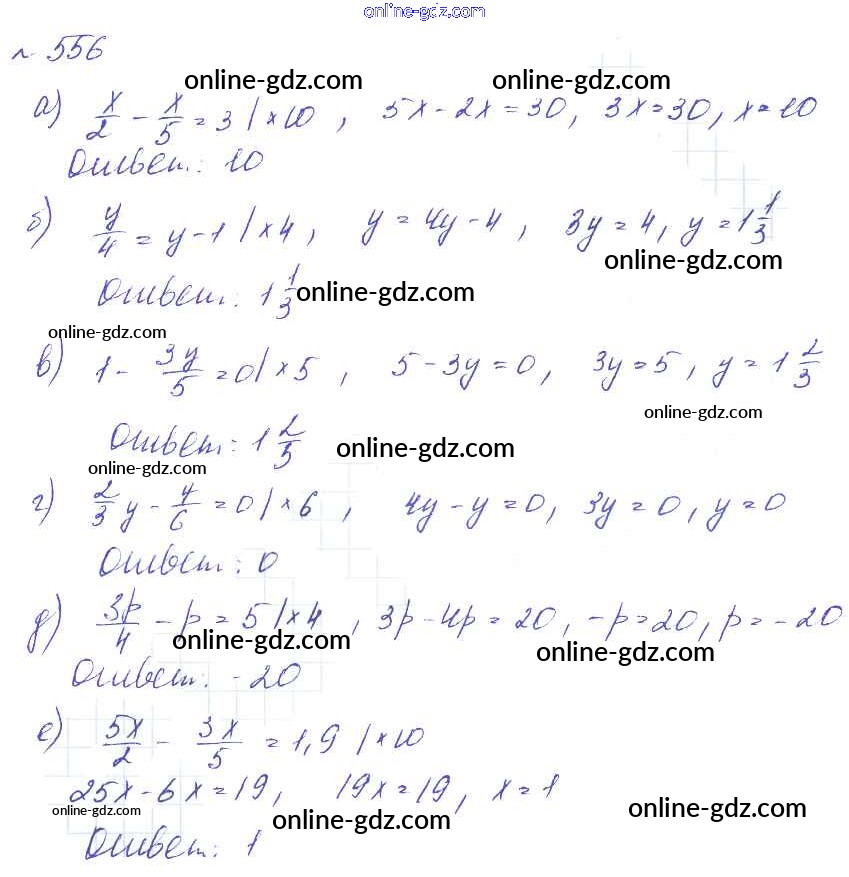 online-gdz.com
№ 556
online-gdz.com online-gdz.com
а) x/2 - x/5 = 3 | × 10 , 5x - 2x = 30, 3x = 30, x = 10
Ответ: 10
б) y/4 = y - 1 | × 4, y = 4y - 4 , 3y = 4, y = 1 1/3
online-gdz.com
Ответ: 1 1/3 online-gdz.com
online-gdz.com
в) 1 - 3y/5 = 0 | × 5 , 5 - 3y = 0, 3y = 5, y = 1 2/3
online-gdz.com
Ответ: 1 2/3 online-gdz.com
online-gdz.com
г) 2/3 y - y/6 = 0 | × 6 , 4y - y = 0, 3y = 0, y = 0
Ответ: 0
д) 3p/4 - p = 5 | × 4 , 3p - 4p = 20, -p = 20, p = -20
online-gdz.com online-gdz.com
Ответ: -20
е) 5x/2 - 3x/5 = 1,9 | × 10
25x - 6x = 19, 19x = 19, x = 1
online-gdz.com online-gdz.com online-gdz.com
Ответ: 1